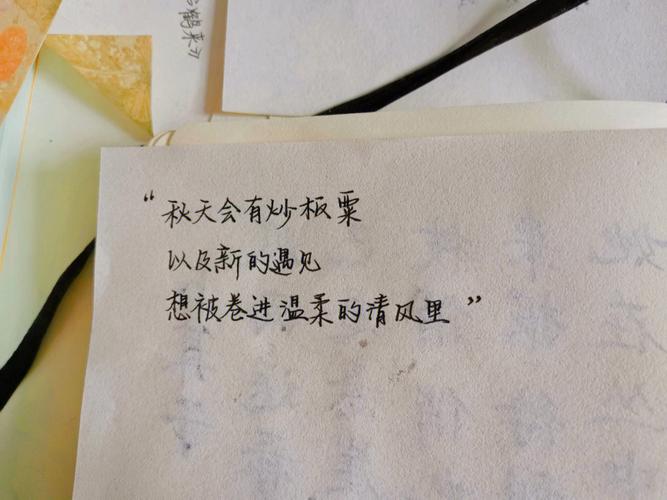 鹤来
“秋天会有炒板粟
以及新的遇见
想被卷进温柔的清风里”